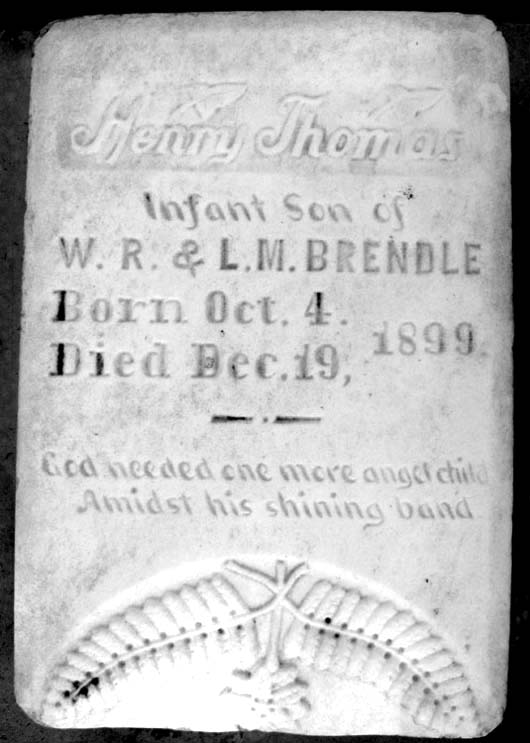 Henry Thomas
Infant Son of
W. R. & L. M. BRENDLE
Born Oct. 4.
Died Dec. 19, 1899.
God needed one more angel child
Amidst his shining band